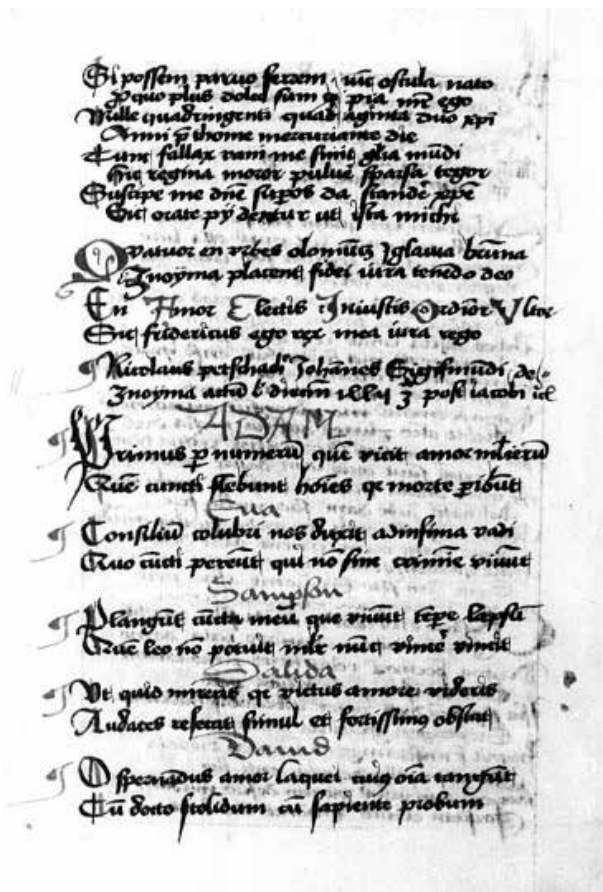 Si possem paruo ferrem nūc oscula nato
P quo plus doleo sum qͥ pia mr̄ ego
Mille quadringenti quadraginta duo xpi
Anni thome mercuriante die
Tunc fallax vani me finit glīa mūdi
Hic regina moror puluē sparsa tegor
Suscipe me dn̄e sup̄os da scandē xpē
Sic orate py dentur ut ista michi
Qvatuor en vrbes olomucz Iglauia brūna
Znoyma placent fidei iura tenēdo deo
En Amor Electis Iniustis Ordior Vltor
Sic fridericus ego rex mea iura rego
Nicolaus Johānes Sygismūdi de
Znoyma post iacobi
ADAM
Primus p numerū quē vicit amor mlierū
Quē cuncti flebunt hōies qͥ morte pibūt
Eua
Consiliū colubri nos duxit ad infima vadi
Quo cūcti pereūt qui nō sine crimīe viuūt
Sampson
Plangūt cūcti meū que viuūt tēpe lapsū
Quē leo nō potuit mlr nūc vincē vincit
Dalida
Vt quid miraris qͥ victus amore videris
Audaces refecat simul et fortissimꝰ obstat
Dauid
O spernādus amor laquei cuiꝰ oīa tangūt
Cū docto stolidum cū sapiente probum